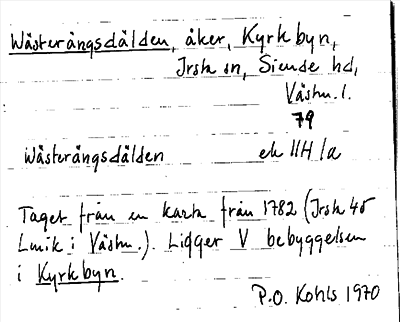 Wästerängsdälden, åker, Kyrkbyn,
Irsta sn, Siende hd,
Västm. l.
79
Wästerängsdälden ek 11H 1a
Taget från en karta från 1782 (Irsta 45
Lmik i Västm.). Ligger V bebyggelsen
i Kyrkbyn.
P.O. Kohls 1970